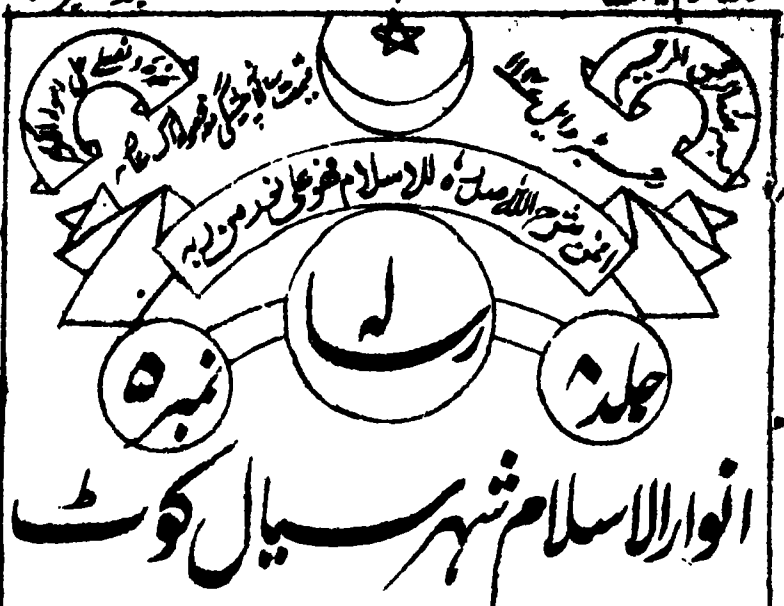 بسم اللہ الرحمن الرحیم
نحمدہ و نصلے علیٰ رسولہ الکریم
رجسٹرڈ ایل
قیمت سالانہ پیشگی
افمن شرح اللہ صدرہ للاسلام فھو علی نور من ربہ
رسالہ
جلد ۸
نمبر ۵
انوار الاسلام شہر سیال کوٹ